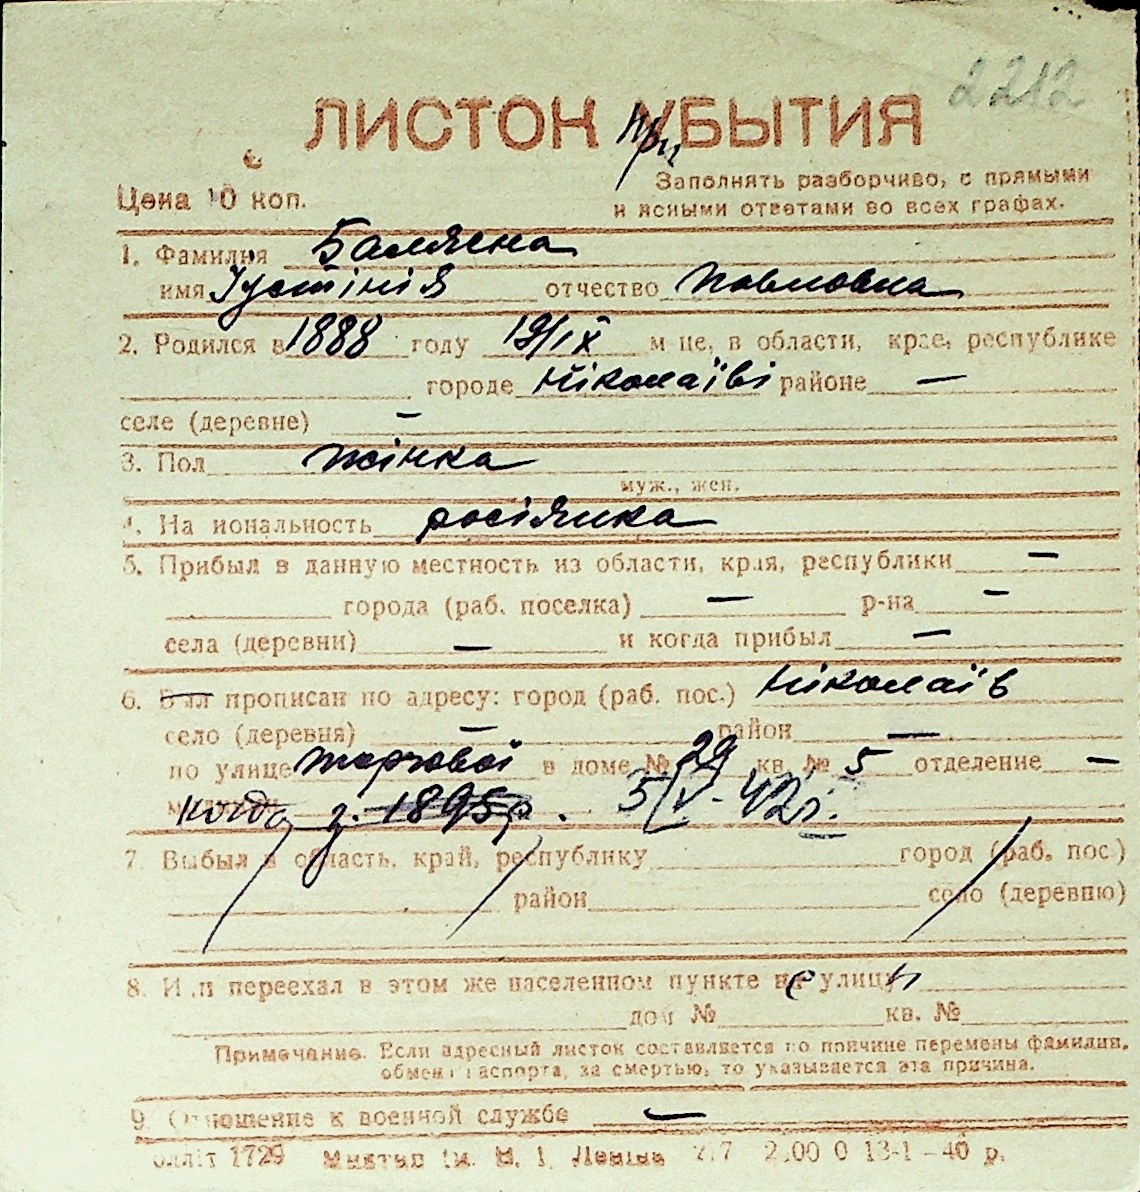 2212
ЛИСТОН УБЫТИЯ
При
Цена 10 коп.
Заполнять разборчиво, с прямыми
и ясными ответами во всех графах.
1. Фамилия Балясна
имя Іустінія отчество Павловна
2. Родился в 1888 году 19/IX м-це, в области, крае, республике
городе Ніколаїві районе —
селе (деревне) —
3. Пол жінка
муж., жен.
4. Национальность росіянка
5. Прибыл в данную местность из области, края, республики —
города (раб. поселка) — р-на —
села (деревни) — и когда прибыл —
6. Был прописан по адресу: город (раб. пос.) Ніколаїв
село (деревня) — район —
по улице Торговой в доме № 29 кв. № 5 отделение —
когда з 1895 р. 5/V-42 г.
7. Выбыл в область, край, республику город (раб. пос.)
район село (деревню)
8. Или переехал в этом же населенном пункте на улицу
дом № кв. №
Примечание. Если адресный листок составляется по причине перемены фамилии,
обмена паспорта, за смертью, то указывается эта причина.
9. Отношение к военной службе —
1729 ім. В. І. Леніна 13-1-40 р.